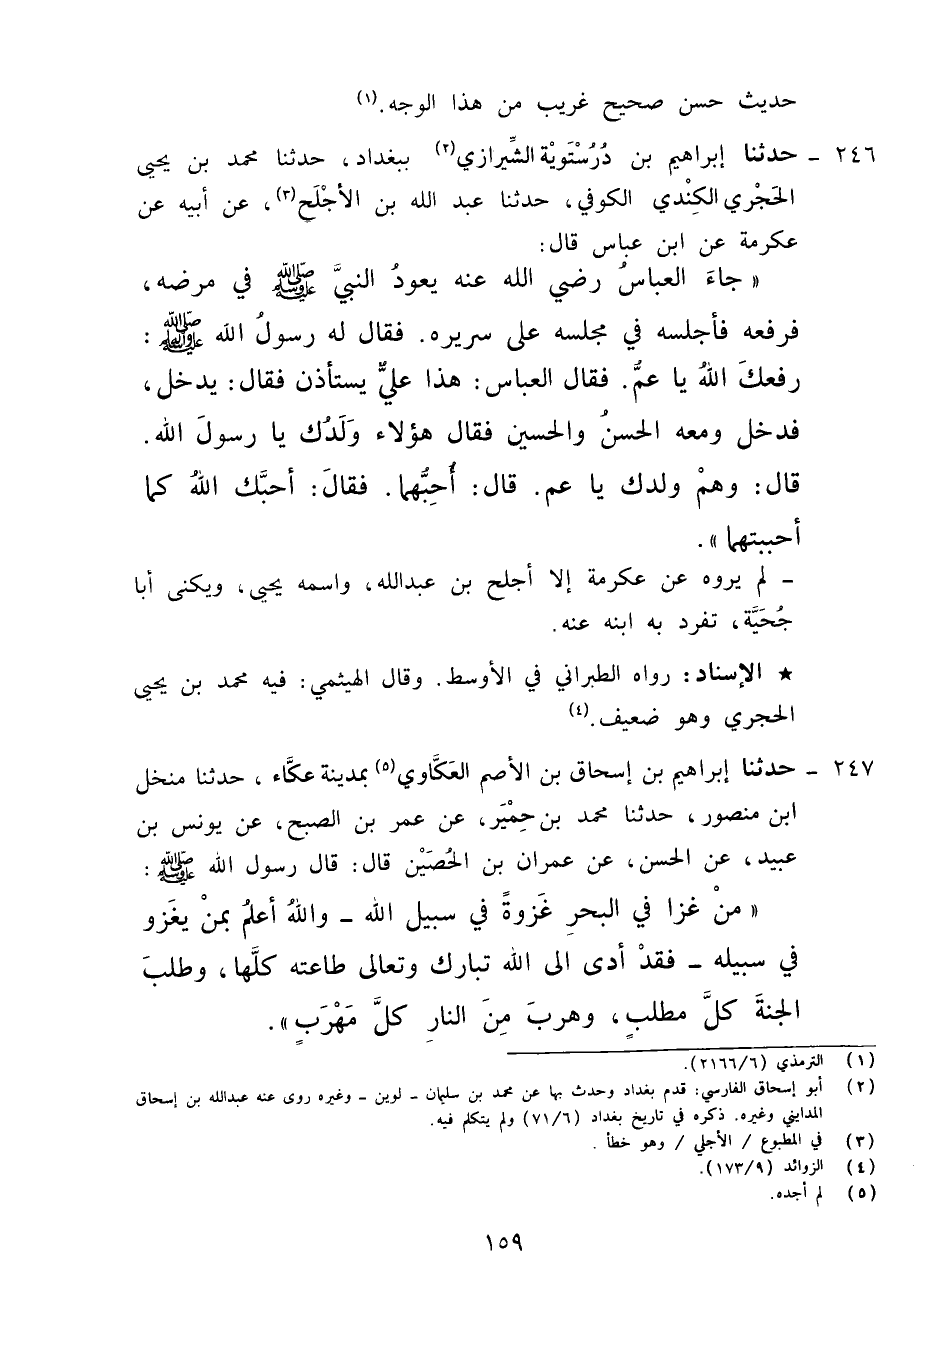 حديث حسن صحيح غريب من هذا الوجه.(١)
٢٤٦ ـ حدثنا إبراهيم بن دُرُسْتَويْة الشِّيرازي(٢) ببغداد، حدثنا محمد بن يحيى
الحَجْري الكِنْدي الكوفي، حدثنا عبد الله بن الأجْلَح(٣)، عن أبيه عن
عكرمة عن ابن عباس قال:
« جاءَ العباسُ رضي الله عنه يعودُ النبيَّ ﷺ في مرضه،
فرفعه فأجلسه في مجلسه على سريره. فقال له رسولُ الله ﷺ :
رفعكَ اللهُ يا عمُّ. فقال العباس: هذا عليٌّ يستأذن فقال: يدخل،
فدخل ومعه الحسنُ والحسين فقال هؤلاء وَلَدُك يا رسولَ الله.
قال: وهمْ ولدك يا عم. قال: أُحِبُّهما. فقالَ: أحبَّك اللهُ كما
أحببتهما ».
ـ لم يروه عن عكرمة إلا أجلح بن عبدالله، واسمه يحيى، ويكنى أبا
جُحَيَّة، تفرد به ابنه عنه.
★ الإسناد: رواه الطبراني في الأوسط. وقال الهيثمي: فيه محمد بن يحيى
الحجري وهو ضعيف.(٤)
٢٤٧ ـ حدثنا إبراهيم بن إسحاق بن الأصم العَكَّاوي(٥) بمدينة عكَّاء ، حدثنا منخل
ابن منصور، حدثنا محمد بن حِمْيَر، عن عمر بن الصبح، عن يونس بن
عبيد، عن الحسن، عن عمران بن الحُصَيْن قال: قال رسول الله ﷺ :
« منْ غزا في البحرِ غَزوةً في سبيل الله ـ واللهُ أعلمُ بمنْ يغَزو
في سبيله ـ فقدْ أدى الى الله تبارك وتعالى طاعته كلَّها، وطلبَ
الجنةَ كلَّ مطلبٍ، وهربَ مِنَ النارِ كلَّ مَهْرَبٍ».
(١) الترمذي (٢١٦٦/٦).
(٢) أبو إسحاق الفارسي: قدم بغداد وحدث بها عن محمد بن سليمان ـ لوين ـ وغيره روى عنه عبدالله بن إسحاق
المدايني وغيره. ذكره في تاريخ بغداد (٧١/٦) ولم يتكلم فيه.
(٣) في المطبوع / الأجلي / وهو خطأ .
(٤) الزوائد (١٧٣/٩).
(٥) لم أجده.
١٥٩